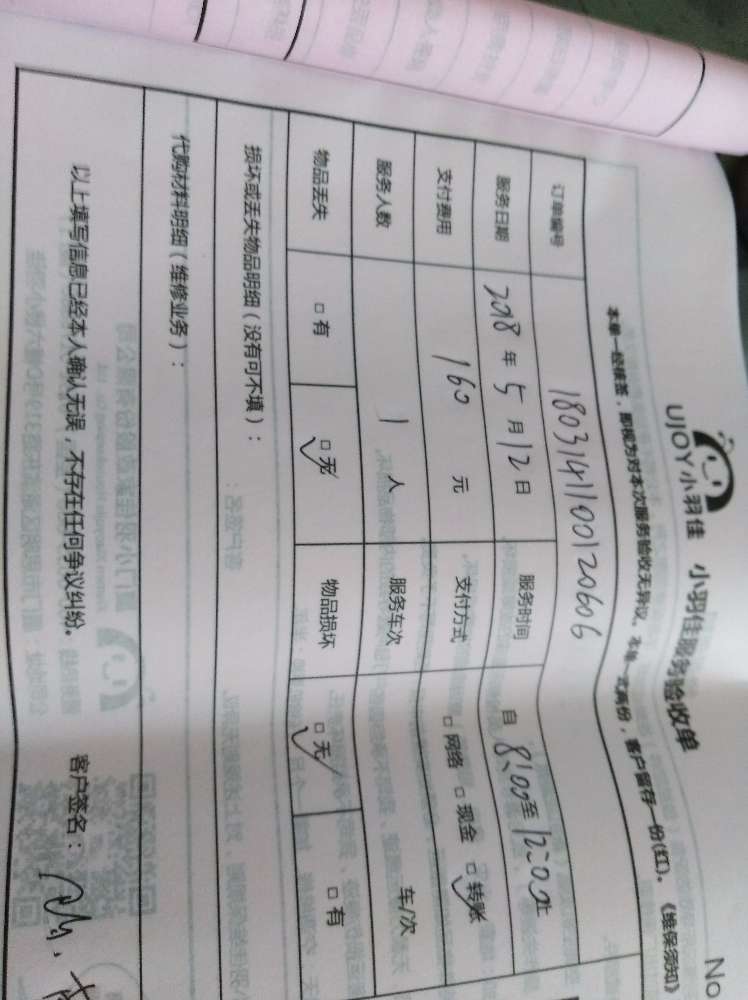 No
UJOY小羽佳 小羽佳服务验收单
本单一经核签，即视为对本次服务验收无异议。本单一式两份，客户留存一份(红)。《维保须知》
订单编号 1803141100120606
服务日期 2018年5月12日 服务时间 自8:00至12:00止
支付费用 160元 支付方式 □网络 □现金 □转账
服务人数 1人 服务车次 车/次
物品丢失 □有 □无 物品损坏 □无 □有
损坏或丢失物品明细（没有可不填）：
代购材料明细（维修业务）：
以上填写信息已经本人确认无误，不存在任何争议纠纷。 客户签名：